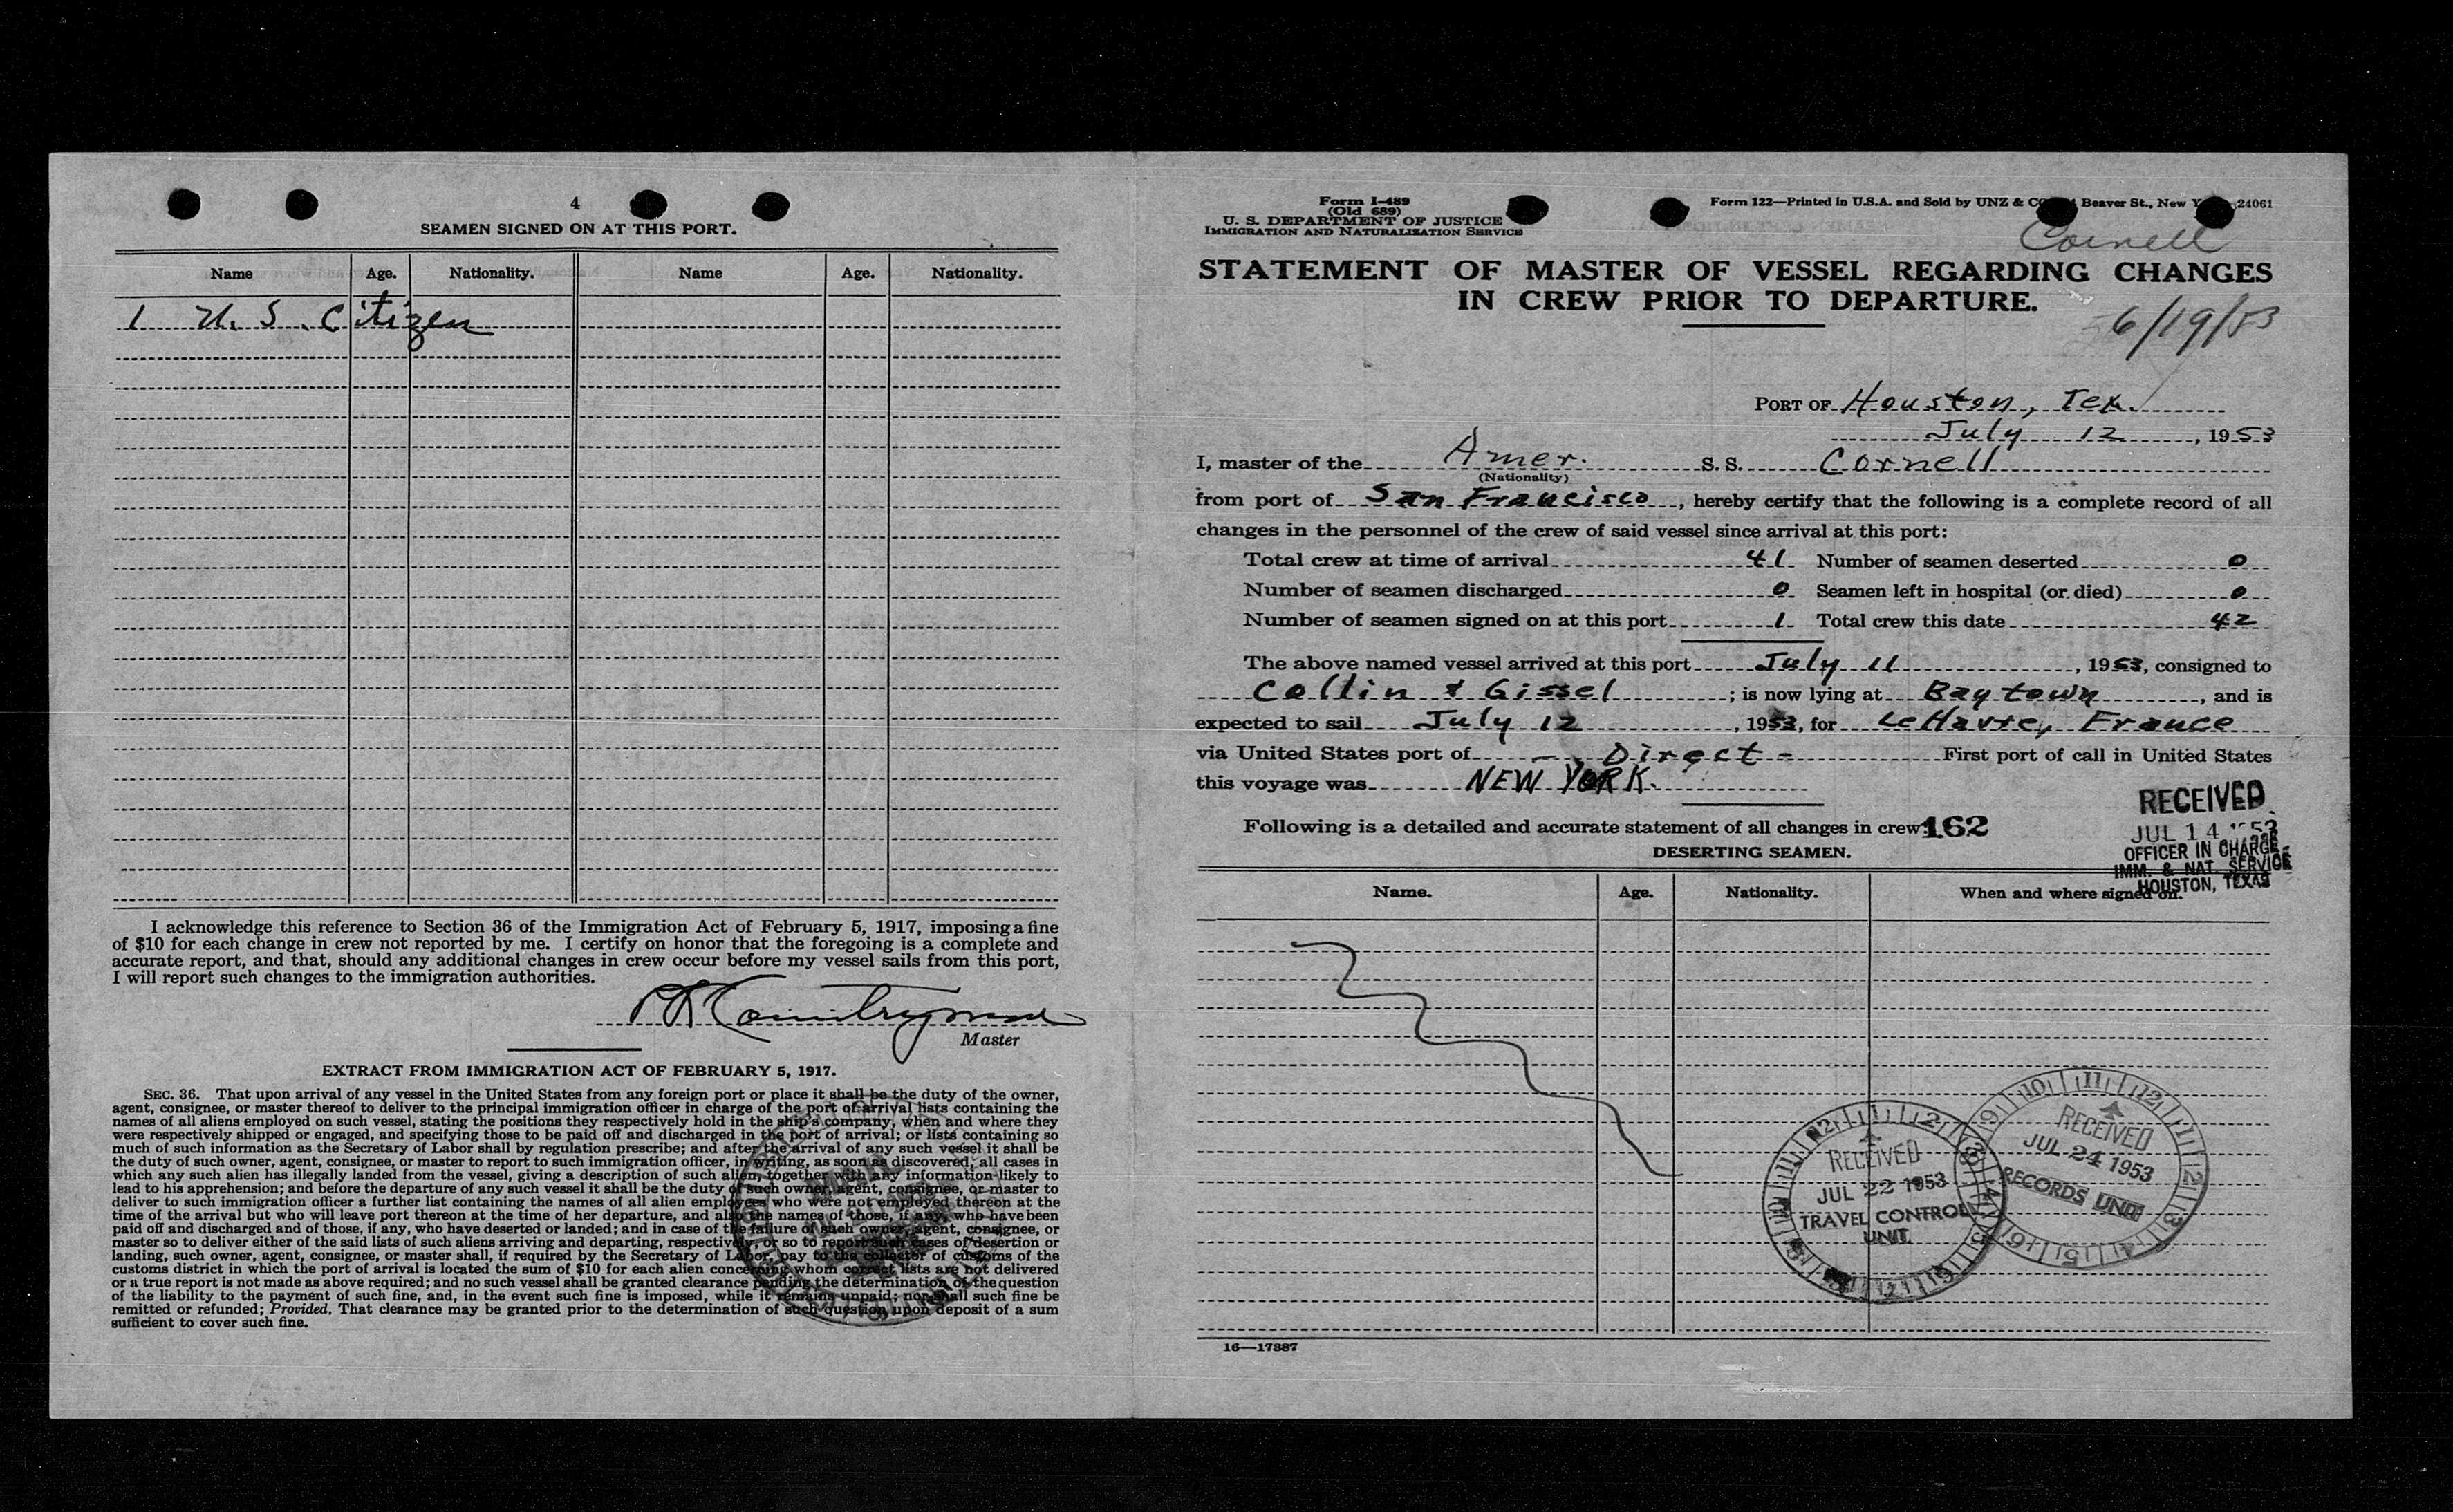 4
SEAMEN SIGNED ON AT THIS PORT.
Name Age. Nationality. Name Age. Nationality.
1 U. S. Citizen
I acknowledge this reference to Section 36 of the Immigration Act of February 5, 1917, imposing a fine
of $10 for each change in crew not reported by me. I certify on honor that the foregoing is a complete and
accurate report, and that, should any additional changes in crew occur before my vessel sails from this port,
I will report such changes to the immigration authorities.
Countryman
Master
EXTRACT FROM IMMIGRATION ACT OF FEBRUARY 5, 1917.
SEC. 36. That upon arrival of any vessel in the United States from any foreign port or place it shall be the duty of the owner,
agent, consignee, or master thereof to deliver to the principal immigration officer in charge of the port of arrival lists containing the
names of all aliens employed on such vessel, stating the positions they respectively hold in the ship's company, when and where they
were respectively shipped or engaged, and specifying those to be paid off and discharged in the port of arrival; or lists containing so
much of such information as the Secretary of Labor shall by regulation prescribe; and after the arrival of any such vessel it shall be
the duty of such owner, agent, consignee, or master to report to such immigration officer, in writing, as soon as discovered, all cases in
which any such alien has illegally landed from the vessel, giving a description of such alien, together with any information likely to
lead to his apprehension; and before the departure of any such vessel it shall be the duty of such owner, agent, consignee, or master to
deliver to such immigration officer a further list containing the names of all alien employees who were not employed thereon at the
time of the arrival but who will leave port thereon at the time of her departure, and also the names of those, if any, who have been
paid off and discharged and of those, if any, who have deserted or landed; and in case of the failure of such owner, agent, consignee, or
master so to deliver either of the said lists of such aliens arriving and departing, respectively, or so to report such cases of desertion or
landing, such owner, agent, consignee, or master shall, if required by the Secretary of Labor, pay to the collector of customs of the
customs district in which the port of arrival is located the sum of $10 for each alien concerning whom correct lists are not delivered
or a true report is not made as above required; and no such vessel shall be granted clearance pending the determination of the question
of the liability to the payment of such fine, and, in the event such fine is imposed, while it remains unpaid; nor shall such fine be
remitted or refunded; Provided, That clearance may be granted prior to the determination of such question upon deposit of a sum
sufficient to cover such fine.
Form I-489
(Old 689)
U. S. DEPARTMENT OF JUSTICE
IMMIGRATION AND NATURALIZATION SERVICE
Form 122—Printed in U.S.A. and Sold by UNZ & CO Beaver St., New Y 24061
Cornell
STATEMENT OF MASTER OF VESSEL REGARDING CHANGES
IN CREW PRIOR TO DEPARTURE.
6/19/53
PORT OF Houston, Tex.
July 12, 1953
I, master of the Amer. S. S. Cornell
(Nationality)
from port of San Francisco, hereby certify that the following is a complete record of all
changes in the personnel of the crew of said vessel since arrival at this port:
Total crew at time of arrival 41 Number of seamen deserted 0
Number of seamen discharged 0 Seamen left in hospital (or died) 0
Number of seamen signed on at this port 1 Total crew this date 42
The above named vessel arrived at this port July 11, 1953, consigned to
Collin & Gissel; is now lying at Baytown, and is
expected to sail July 12, 1953, for LeHavre, France
via United States port of - Direct - First port of call in United States
this voyage was NEW YORK.
Following is a detailed and accurate statement of all changes in crew:
162
RECEIVED
JUL 14 1953
OFFICER IN CHARGE
IMM. & NAT. SERVICE
HOUSTON, TEXAS
DESERTING SEAMEN.
Name. Age. Nationality. When and where signed on.
RECEIVED
JUL 22 1953
TRAVEL CONTROL
UNIT
RECEIVED
JUL 24 1953
RECORDS UNIT
16—17887